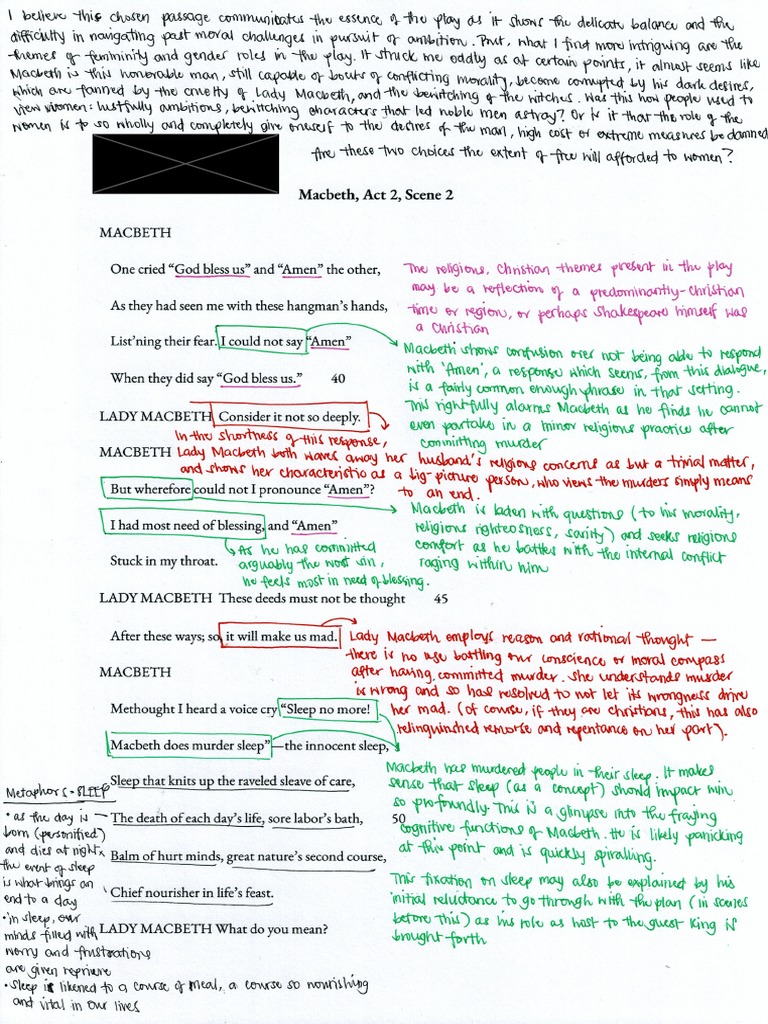 I believe this chosen passage communicates the essence of the play as it shows the delicate balance and the
difficulty in navigating past moral challenges in pursuit of ambition. But, what I find more intriguing are the
themes of femininity and gender roles in the play. It struck me oddly as at certain points, it almost seems like
Macbeth is this honorable man, still capable of bouts of conflicting morality, become corrupted by his dark desires,
which are fanned by the cruelty of Lady Macbeth, and the bewitching of the witches. Was this how people used to
view women: lustfully ambitions, bewitching characters that led noble men astray? Or is it that the role of the
women is to so wholly and completely give oneself to the desires of the man, high cost or extreme measures be damned
Are these two choices the extent of free will afforded to women?
Macbeth, Act 2, Scene 2
MACBETH
One cried "God bless us" and "Amen" the other,
As they had seen me with these hangman's hands,
List'ning their fear. I could not say "Amen"
When they did say "God bless us." 40
The religious, Christian themes present in the play
may be a reflection of a predominantly-christian
time or region, or perhaps Shakespeare himself was
a Christian
Macbeth shows confusion over not being able to respond
with 'Amen', a response which seems, from this dialogue,
is a fairly common enough phrase in that setting.
This rightfully alarms Macbeth as he finds he cannot
even partake in a minor religious practice after
committing murder
LADY MACBETH Consider it not so deeply.
In the shortness of this response,
Lady Macbeth both waves away her husband's religious concerns as but a trivial matter,
and shows her characteristic as a big-picture person, who views the murders simply means
to an end.
MACBETH
But wherefore could not I pronounce "Amen"?
I had most need of blessing, and "Amen"
Stuck in my throat.
Macbeth is laden with questions (to his morality,
religious righteousness, sanity) and seeks religious
comfort as he battles with the internal conflict
raging within him
As he has committed
arguably the worst sin,
he feels most in need of blessing.
LADY MACBETH These deeds must not be thought 45
After these ways; so, it will make us mad.
Lady Macbeth employs reason and rational thought —
there is no use battling our conscience or moral compass
after having committed murder. She understands murder
is wrong and so has resolved to not let its wrongness drive
her mad. (Of course, if they are christians, this has also
relinquished remorse and repentance on her part).
MACBETH
Methought I heard a voice cry "Sleep no more!
Macbeth does murder sleep"—the innocent sleep,
Sleep that knits up the raveled sleave of care,
The death of each day's life, sore labor's bath, 50
Balm of hurt minds, great nature's second course,
Chief nourisher in life's feast.
Macbeth has murdered people in their sleep. It makes
sense that sleep (as a concept) should impact him
so profoundly. This is a glimpse into the fraying
cognitive functions of Macbeth. He is likely panicking
at this point and is quickly spiralling.
This fixation on sleep may also be explained by his
initial reluctance to go through with the plan (in scenes
before this) as his role as host to the guest King is
brought forth
LADY MACBETH What do you mean?
Metaphors - SLEEP
• as the day is
born (personified)
and dies at night,
the event of sleep
is what brings an
end to a day
• in sleep, our
minds filled with
worry and frustrations
are given reprieve
• Sleep is likened to a course of meal, a course so nourishing
and vital in our lives